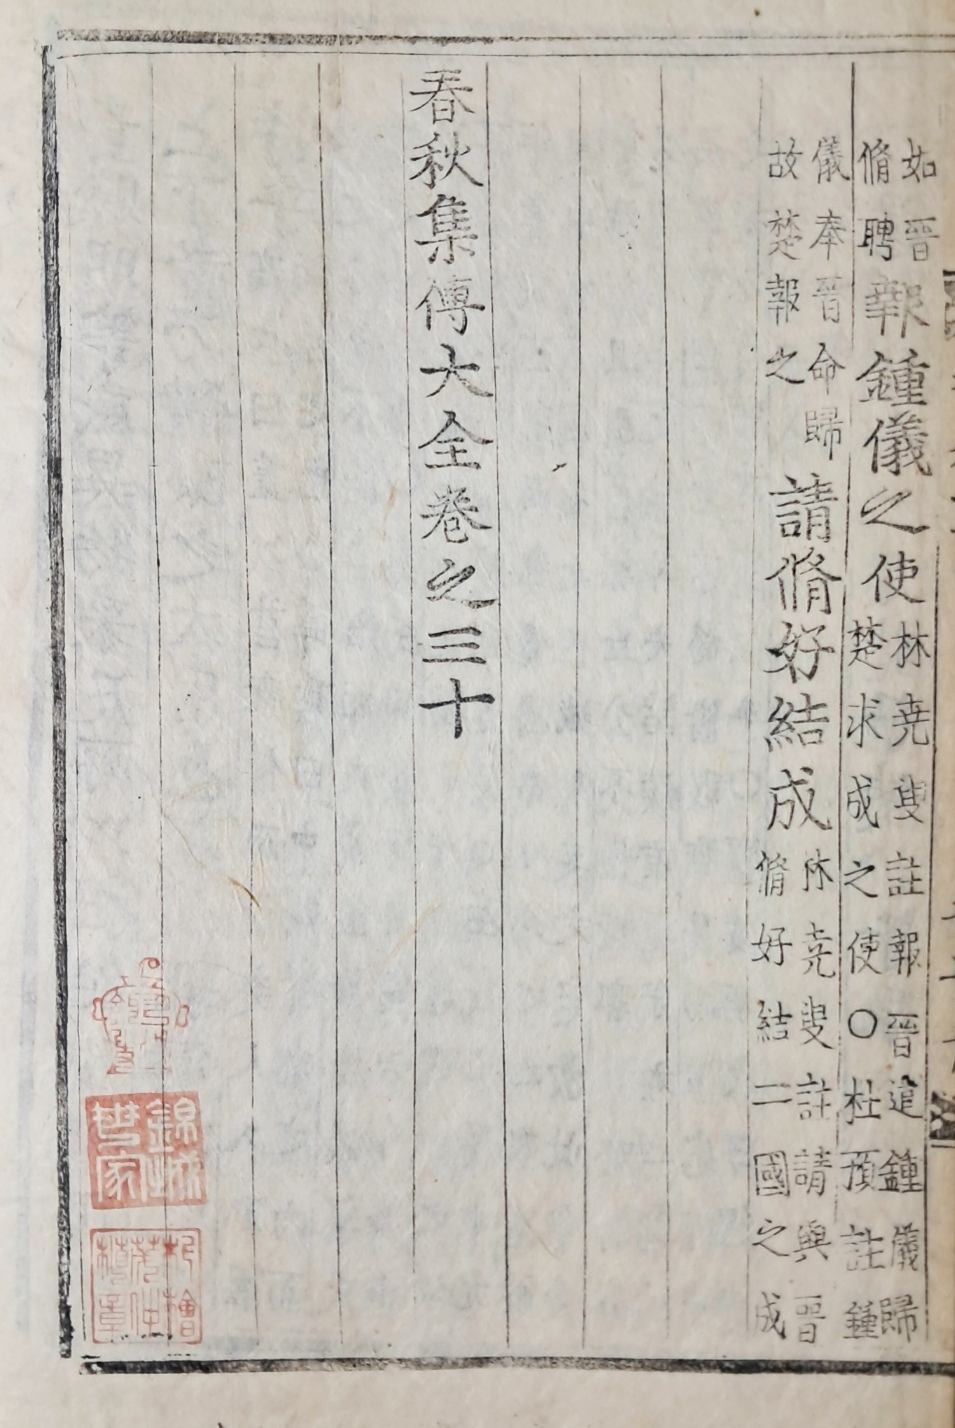 如晉
脩聘
報鍾儀之使
林堯叟註報晉遣鍾儀歸
楚求成之使○杜預註鍾
儀奉晉命歸
故楚報之
請脩好結成
林堯叟註請與晉
脩好結二國之成
春秋集傳大全卷之三十
錦城世家
朴檜茂仲植章